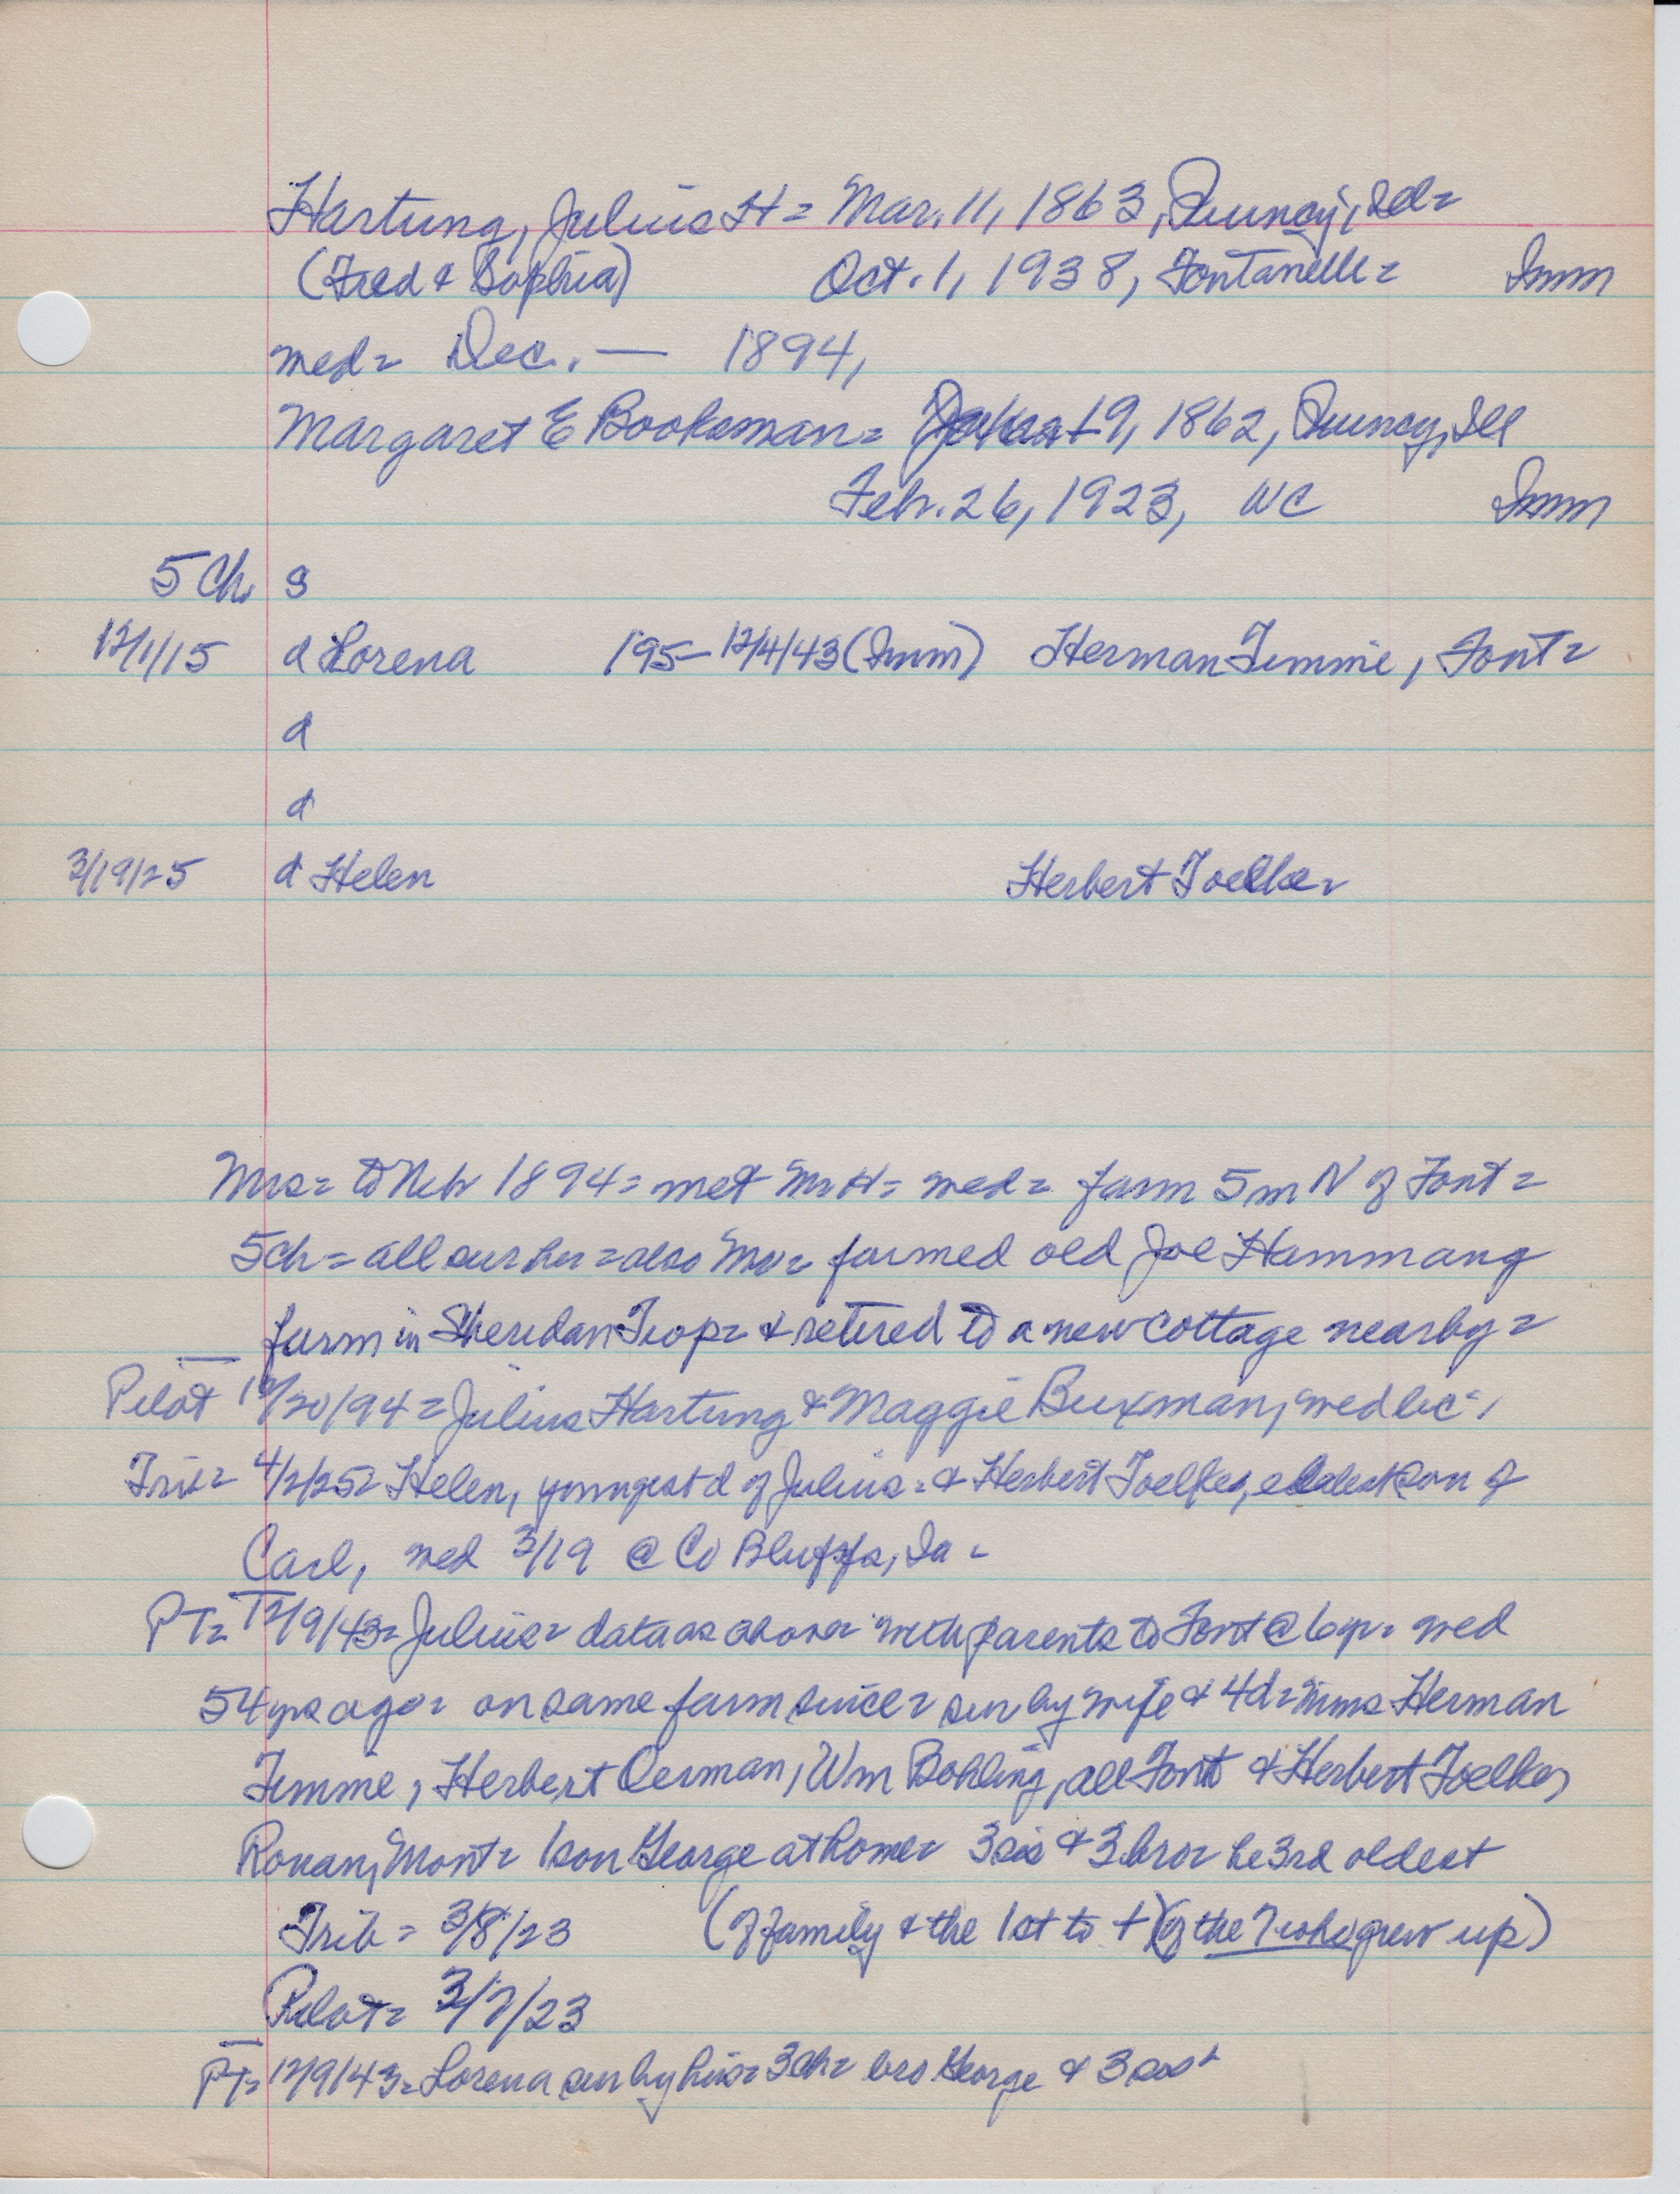 Hartung, Julius H = Mar. 11, 1863, Quincy, Ill =
(Fred & Sophia) Oct. 1, 1938, Fontanelle = Imm
med = Dec. — 1894,
Margaret E Booksman = 19, 1862, Quincy, Ill
Feb. 26, 1923, WC Imm
5 Ch. s
12/1/15 d Lorena 195- 12/4/43 (Imm) Herman Temme, Font =
d
d
3/19/25 d Helen Herbert Toelke =
Mrs = to Neb 1894 = met Mr H = med = farm 5 m N of Font =
5 ch = all sur her = also Mr = farmed old Joe Hammang
farm in Sheridan Twop = & retired to a new cottage nearby =
Pilot 12/20/94 = Julius Hartung & Maggie Buxman, med lic =
Trib = 4/2/25 = Helen, youngest d of Julius = & Herbert Toelkes, eldest son of
Carl, med 3/19 @ Co Bluffs, Ia =
PT = 12/9/43 = Julius = data as above = with parents to Font @ 6 yr = med
54 yrs ago = on same farm since = sur by wife & 4 d = Mms Herman
Temme, Herbert Oerman, Wm Bohling, all Font & Herbert Toelkes,
Ronan, Mont = 1 son George at home = 3 sis & 3 bro = he 3rd oldest
Trib = 3/8/23 (of family & the 1st to +) (of the 7 who grew up)
Pilot = 3/7/23
PT = 12/9/43 = Lorena sur by hus = 3 ch = bro George & 3 sis =